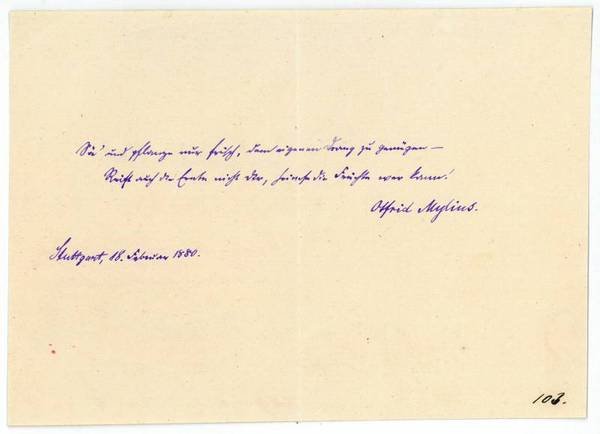 Sä' und pflanze nur frisch, dem eigenen Drang zu genügen —
Reift auch die Ernte nicht Dir, die Früchte wer kann!
Otfrid Mylius.
Stuttgart, 18. Februar 1880.
103.